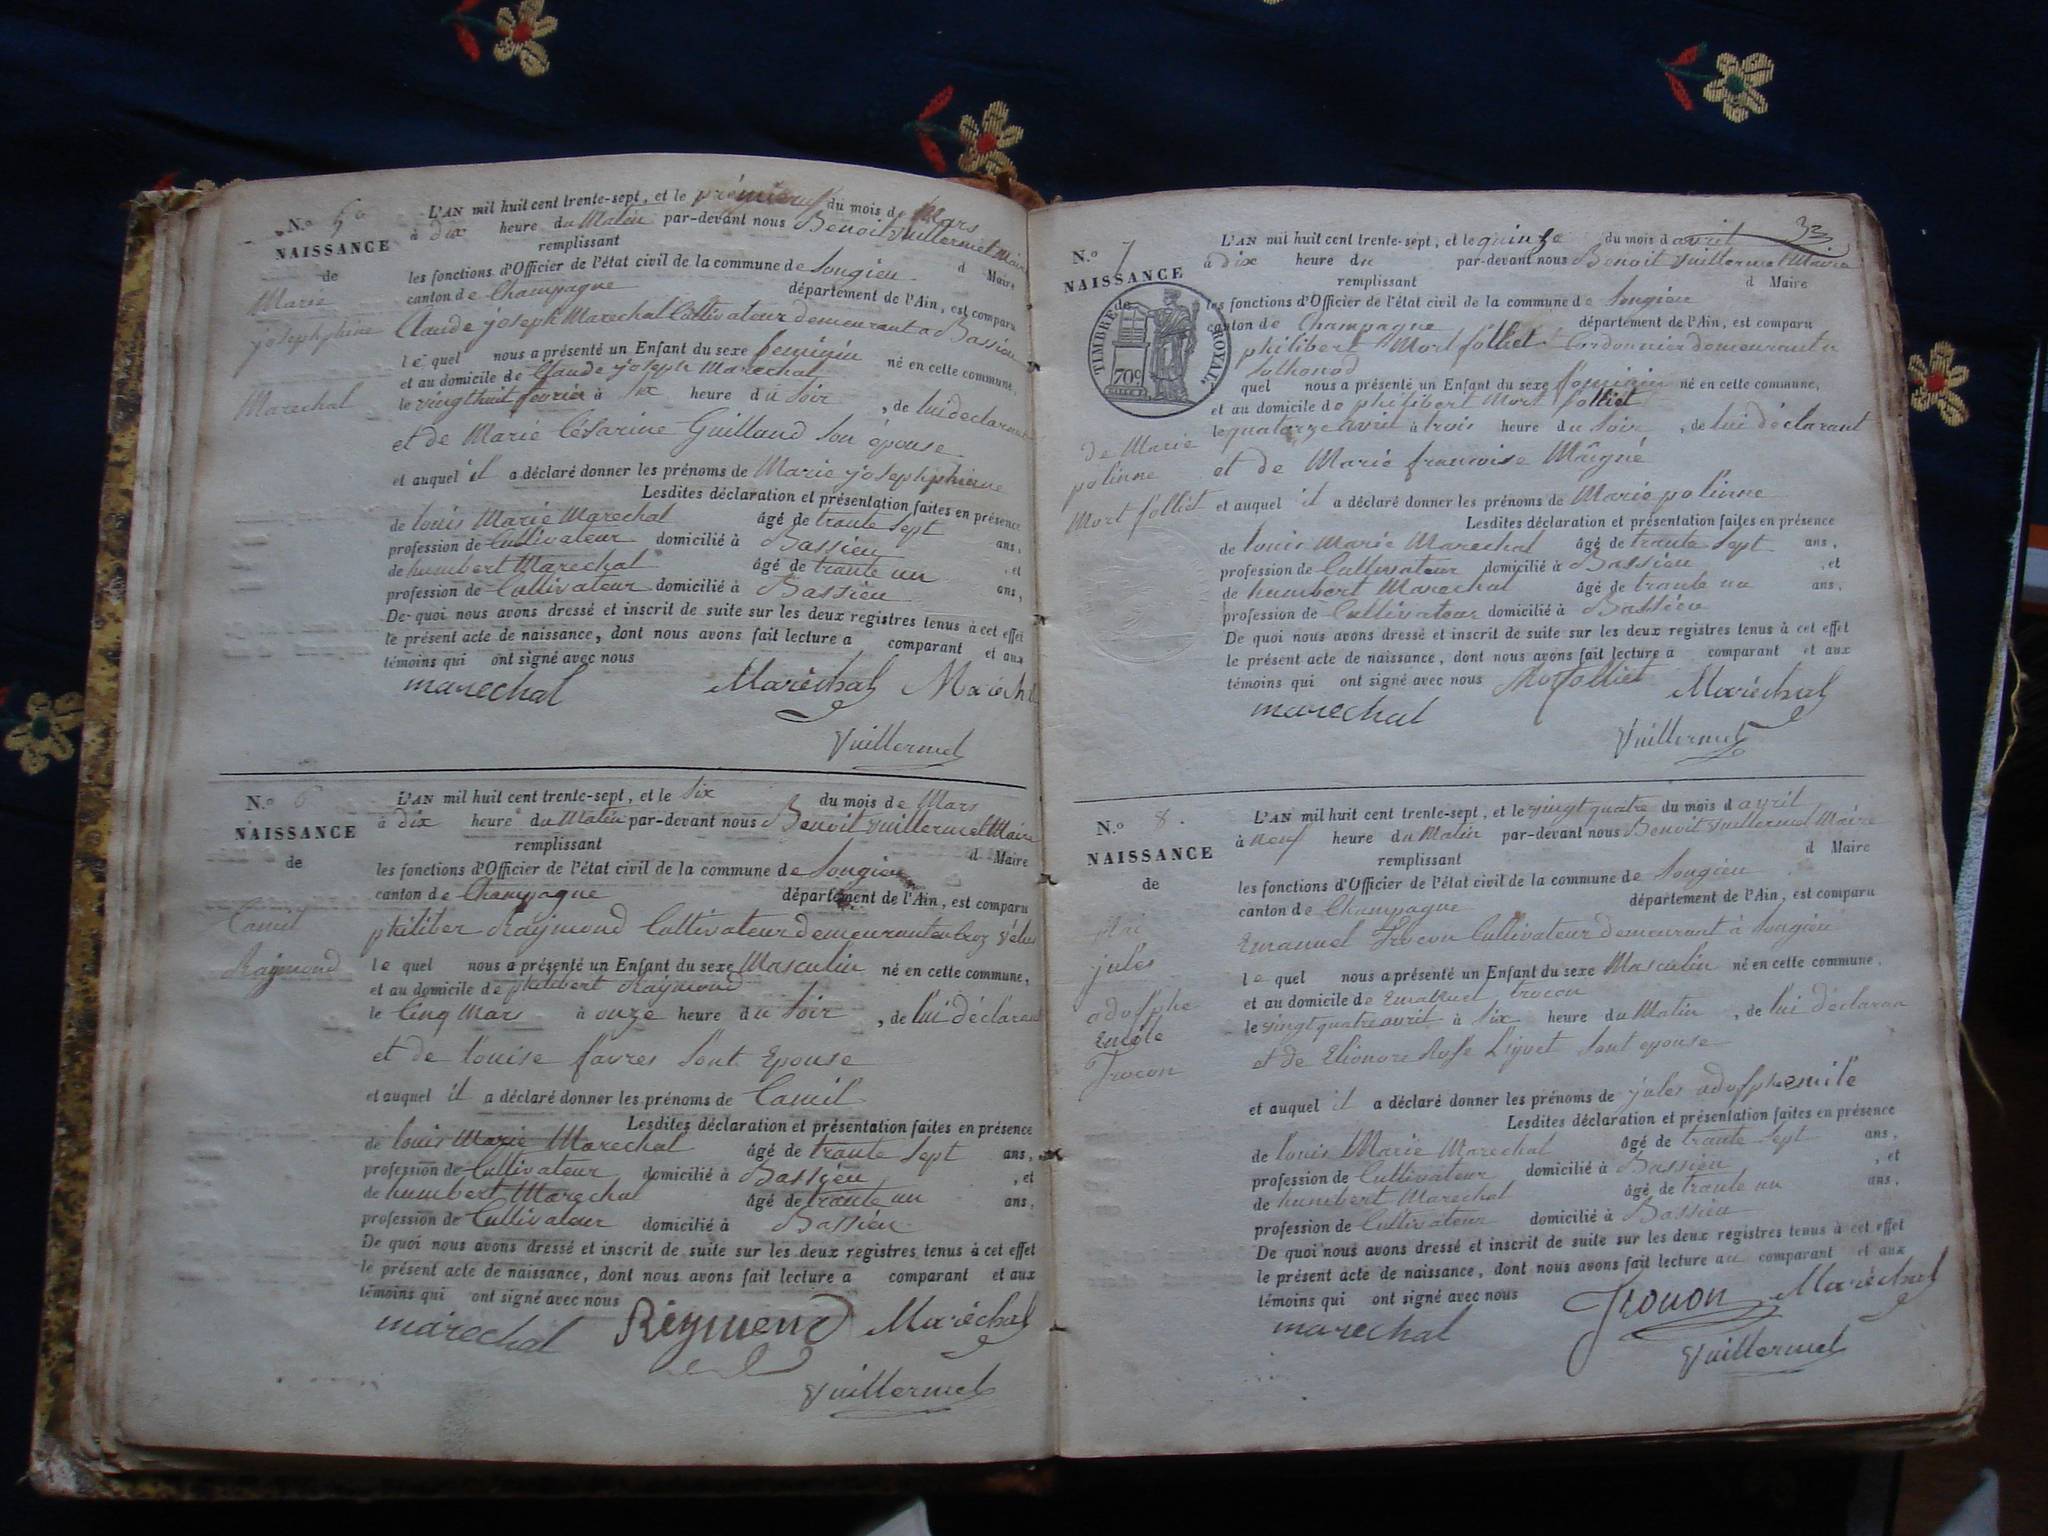 N.º 5
NAISSANCE
de
Marie
josephphine
Marechal
L'AN mil huit cent trente-sept, et le premier du mois de Mars
à dix heure du Matin par-devant nous Benoit Vuillermet Maire
remplissant d Maire
les fonctions d'Officier de l'état civil de la commune de Songieu
canton de Champagne département de l'Ain, est comparu
Claude joseph Marechal Cultivateur demeurant a Bassieu
le quel nous a présenté un Enfant du sexe feminin né en cette commune,
et au domicile de Claude joseph Marechal
le vingt huit fevrier à Six heure du Soir, de lui declarant
et de Marie Césarine Guilland Son épouse
et auquel il a déclaré donner les prénoms de Marie josephphine
Lesdites déclaration et présentation faites en présence
de louis Marie Marechal âgé de trante Sept ans,
profession de Cultivateur domicilié à Bassieu, et
de humbert Marechal âgé de trante un ans,
profession de Cultivateur domicilié à Bassieu
De quoi nous avons dressé et inscrit de suite sur les deux registres tenus à cet effet
le présent acte de naissance, dont nous avons fait lecture a comparant et aux
témoins qui ont signé avec nous
marechal Maréchal Maréch
Vuillermet
N.º 6
NAISSANCE
de
Camil
Raymond
L'AN mil huit cent trente-sept, et le Six du mois de Mars
à dix heure du Matin par-devant nous Benoit Vuillermet Maire
remplissant d Maire
les fonctions d'Officier de l'état civil de la commune de Songieu
canton de Champagne département de l'Ain, est comparu
philiber Raymond Cultivateur demeurant
le quel nous a présenté un Enfant du sexe Masculin né en cette commune,
et au domicile de philibert Raymond
le Cinq Mars à onze heure du Soir, de lui déclarant
et de louise favres Sont Epouse
et auquel il a déclaré donner les prénoms de Camil
Lesdites déclaration et présentation faites en présence
de louis Marie Marechal âgé de trante Sept ans,
profession de Cultivateur domicilié à Bassieu, et
de humbert Marechal âgé de trante un ans,
profession de Cultivateur domicilié à Bassieu
De quoi nous avons dressé et inscrit de suite sur les deux registres tenus à cet effet
le présent acte de naissance, dont nous avons fait lecture a comparant et aux
témoins qui ont signé avec nous
marechal Réymend Maréchal
Vuillermet
33
N.º 7
NAISSANCE
de
TIMBRE ROYAL
70c
de Marie
polinne
Mort folliet
L'AN mil huit cent trente-sept, et le quinze du mois d avril
à dix heure du par-devant nous Benoit Vuillermet Maire
remplissant d Maire
les fonctions d'Officier de l'état civil de la commune de Songieu
canton de Champagne département de l'Ain, est comparu
philibert Mort folliet Cordonnier demeurant a
Sothonod
quel nous a présenté un Enfant du sexe feminin né en cette commune,
et au domicile de philibert Mort folliet
le quatorze avril à trois heure du Soir, de lui déclarant
et de Marie francoise Maigné
et auquel il a déclaré donner les prénoms de Marie polinne
Lesdites déclaration et présentation faites en présence
de louis Marie Marechal âgé de trante Sept ans,
profession de Cultivateur domicilié à Bassieu, et
de humbert Marechal âgé de trante un ans,
profession de Cultivateur domicilié à Bassieu
De quoi nous avons dressé et inscrit de suite sur les deux registres tenus à cet effet
le présent acte de naissance, dont nous avons fait lecture a comparant et aux
témoins qui ont signé avec nous Morfolliet Maréchal
marechal
Vuillermet
N.º 8.
NAISSANCE
de
jules
adolphe
Emile
Trocon
L'AN mil huit cent trente-sept, et le vingt quatre du mois d avril
à Neuf heure du Matin par-devant nous Benoit Vuillermet Maire
remplissant d Maire
les fonctions d'Officier de l'état civil de la commune de Songieu
canton de Champagne département de l'Ain, est comparu
Emanuel Trocon Cultivateur demeurant à Songieu
le quel nous a présenté un Enfant du sexe Masculin né en cette commune,
et au domicile de Emanuel trocon
le vingt quatre avril à Six heure du Matin, de lui déclaran
et de Elionore Rose Liquet Sont epouse
et auquel il a déclaré donner les prénoms de jules adolphe emile
Lesdites déclaration et présentation faites en présence
de louis Marie Marechal âgé de trante Sept ans,
profession de Cultivateur domicilié à Bassieu, et
de humbert Marechal âgé de trante un ans,
profession de Cultivateur domicilié à Bassieu
De quoi nous avons dressé et inscrit de suite sur les deux registres tenus à cet effet
le présent acte de naissance, dont nous avons fait lecture au comparant et aux
témoins qui ont signé avec nous
marechal Trocon Maréchal
Vuillermet